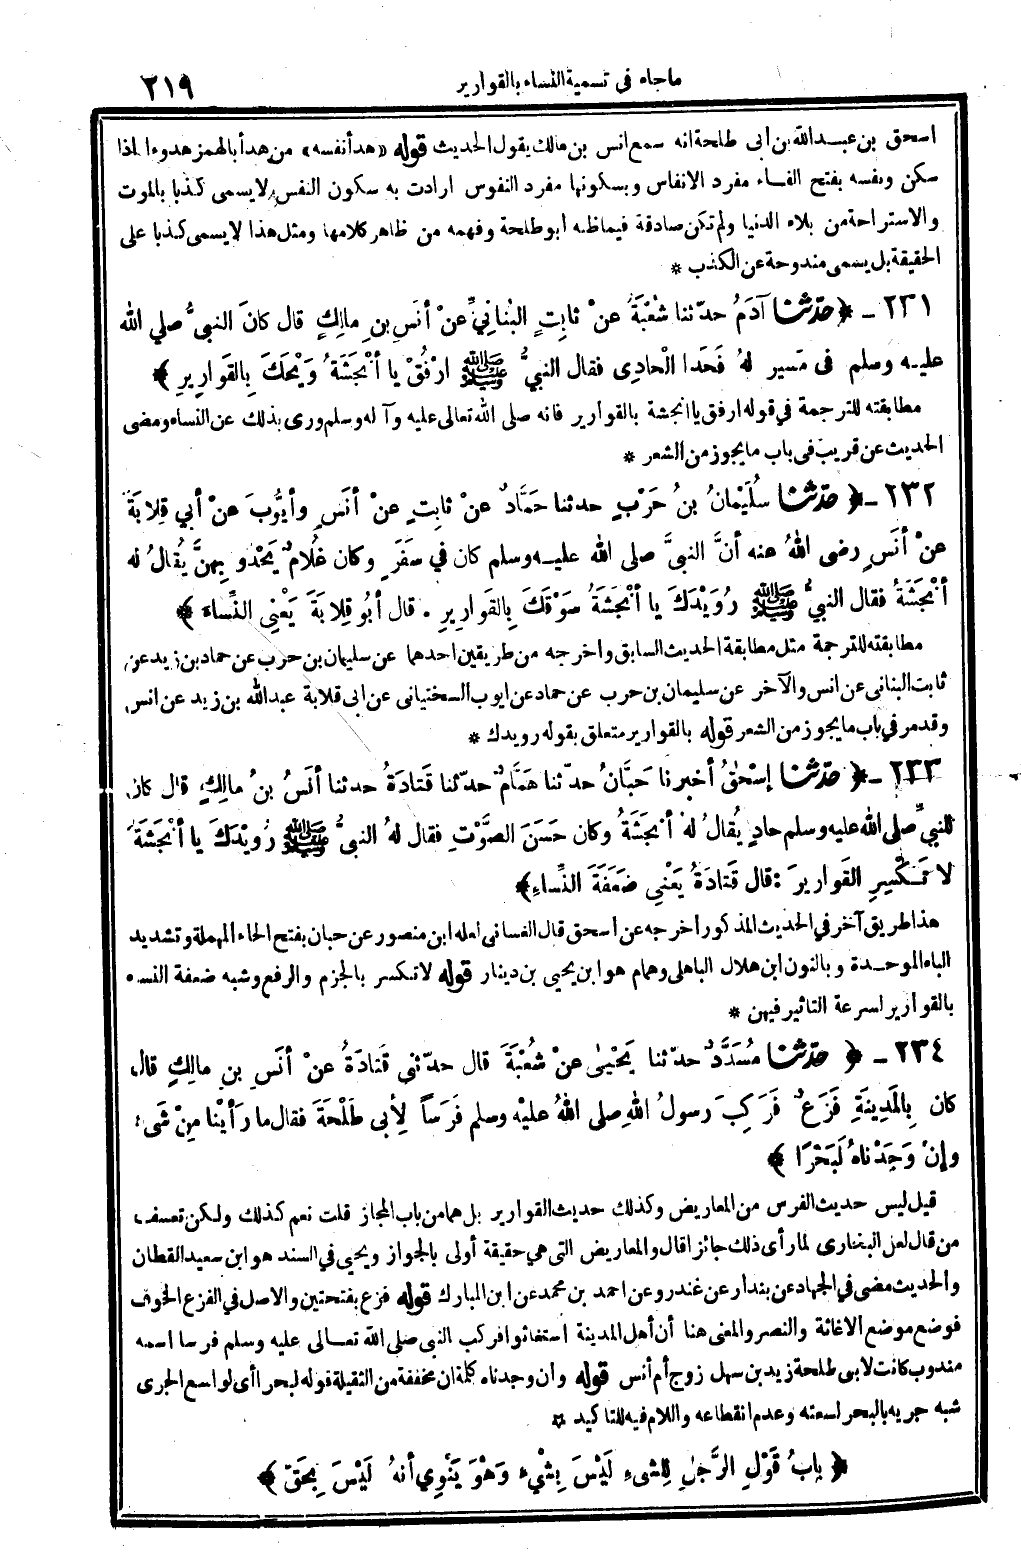 ماجاء فى تسمية النساء بالقوارير ٢١٩
اسحق بن عبد الله بن أبى طلحة انه سمع انس بن مالك يقول الحديث قوله «هدأ نفسه» من هدأ بالهمز هدوءا اذا
سكن ونفسه بفتح الفاء مفرد الانفاس وبسكونها مفرد النفوس ارادت به سكون النفس لا يسمى كذبا بالموت
والاستراحة من بلاء الدنيا ولم تكن صادقة فيما ظنه أبو طلحة وفهمه من ظاهر كلامها ومثل هذا لا يسمى كذبا على
الحقيقة بل يسمى مندوحة عن الكذب *
٢٣١ ـ ﴿ حدّثنا آدَمُ حدّثنا شُعْبَةُ عنْ ثابِتٍ البُنانِيِّ عنْ أنَسِ بنِ مالِكٍ قال كانَ النبيُّ صلي الله
عليه وسلم فى مَسيرٍ لهُ فَحَدا الْحادِى فقال النبيُّ ﷺ ارْفُقْ يا أنْجَشَةُ وَيْحَكَ بِالقَوارِيرِ ﴾
مطابقته للترجمة في قوله ارفق يا انجشة بالقوارير فانه صلى الله تعالى عليه وآله وسلم ورى بذلك عن النساء ومضى
الحديث عن قريب فى باب ما يجوز من الشعر *
٢٣٢ ـ ﴿ حدّثنا سُلَيْمانُ بنُ حَرْبٍ حدثنا حَمَّادٌ عنْ ثابِتٍ عنْ أنَسٍ وأيُّوبَ عنْ أبي قِلابَةَ
عنْ أنَسٍ رضى اللهُ عنه أنَّ النبىَّ صلى الله عليه وسلم كان في سَفَرٍ وكان غُلامٌ يَحْدُو بِهِنَّ يُقالُ له
أنْجَشَةُ فقال النبيُّ ﷺ رُوَيْدَكَ يا أنْجَشَةُ سَوْقَكَ بِالقَوارِيرِ . قال أبُو قِلابَةَ يَعْنِى النِّساءَ ﴾
مطابقته للترجمة مثل مطابقة الحديث السابق واخرجه من طريقين احدهما عن سليمان بن حرب عن حماد بن زيد عن
ثابت البنانى عن انس والآخر عن سليمان بن حرب عن حماد عن ايوب السختيانى عن ابى قلابة عبد الله بن زيد عن انس
وقد مر في باب ما يجوز من الشعر قوله بالقوارير متعلق بقوله رويدك *
٢٣٣ ـ ﴿ حدّثنا إسْحٰقُ أخبرنا حَبَّانُ حدّثنا هَمَّامٌ حدّثنا قَتادَةُ حدثنا أنَسُ بنُ مالِكٍ قال كان
للنبيِّ صلى الله عليه وسلم حادٍ يُقالُ لهُ أنْجَشَةُ وكان حَسَنَ الصَّوْتِ فقال لهُ النبيُّ ﷺ رُوَيْدَكَ يا أنْجَشَةُ
لا تَكْسِرِ القَوارِيرَ : قال قَتادَةُ يَعْنِي ضَعَفَةَ النِّساءِ ﴾
هذا طريق آخر في الحديث المذكور اخرجه عن اسحق قال الغسانى لعله ابن منصور عن حبان بفتح الحاء المهملة وتشديد
الباء الموحدة وبالنون ابن هلال الباهلى وهمام هو ابن يحيى بن دينار قوله لا تكسر بالجزم والرفع وشبه ضعفة النساء
بالقوارير لسرعة التاثير فيهن *
٢٣٤ ـ ﴿ حدّثنا مُسَدَّدٌ حدّثنا يَحْيىٰ عنْ شُعْبَةَ قال حدّثني قَتادَةُ عنْ أنَسِ بنِ مالِكٍ قال
كان بِالمَدِينَةِ فَزَعٌ فَرَكِبَ رسولُ اللهِ صلى اللهُ عليْه وسلم فَرَساً لِأبى طَلْحَةَ فقال ما رَأيْنا مِنْ شَىْءٍ
وإنْ وَجَدْناهُ لَبَحْرًا ﴾
قيل ليس حديث الفرس من المعاريض وكذلك حديث القوارير بل هما من باب المجاز قلت نعم كذلك ولكن تعسف
من قال لعل البخارى لما رأى ذلك جائزا قال والمعاريض التى هي حقيقة أولى بالجواز ويحيى في السند هو ابن سعيد القطان
والحديث مضى في الجهاد عن بندار عن غندر وعن احمد بن محمد عن ابن المبارك قوله فزع بفتحتين والاصل في الفزع الخوف
فوضع موضع الاغاثة والنصر والمعنى هنا أن أهل المدينة استغاثوا فركب النبى صلى الله تعالى عليه وسلم فرسا اسمه
مندوب كانت لابى طلحة زيد بن سهل زوج أم أنس قوله وان وجدناه كلمة ان مخففة من الثقيلة قوله لبحرا أى لواسع الجرى
شبه جريه بالبحر لسعته وعدم انقطاعه واللام فيه للتاكيد *
﴿ بابُ قَوْلِ الرَّجُلِ لِلشىءِ لَيْسَ بِشْىءٍ وَهْوَ يَنْوِي أنهُ لَيْسَ بِحَقٍّ ﴾